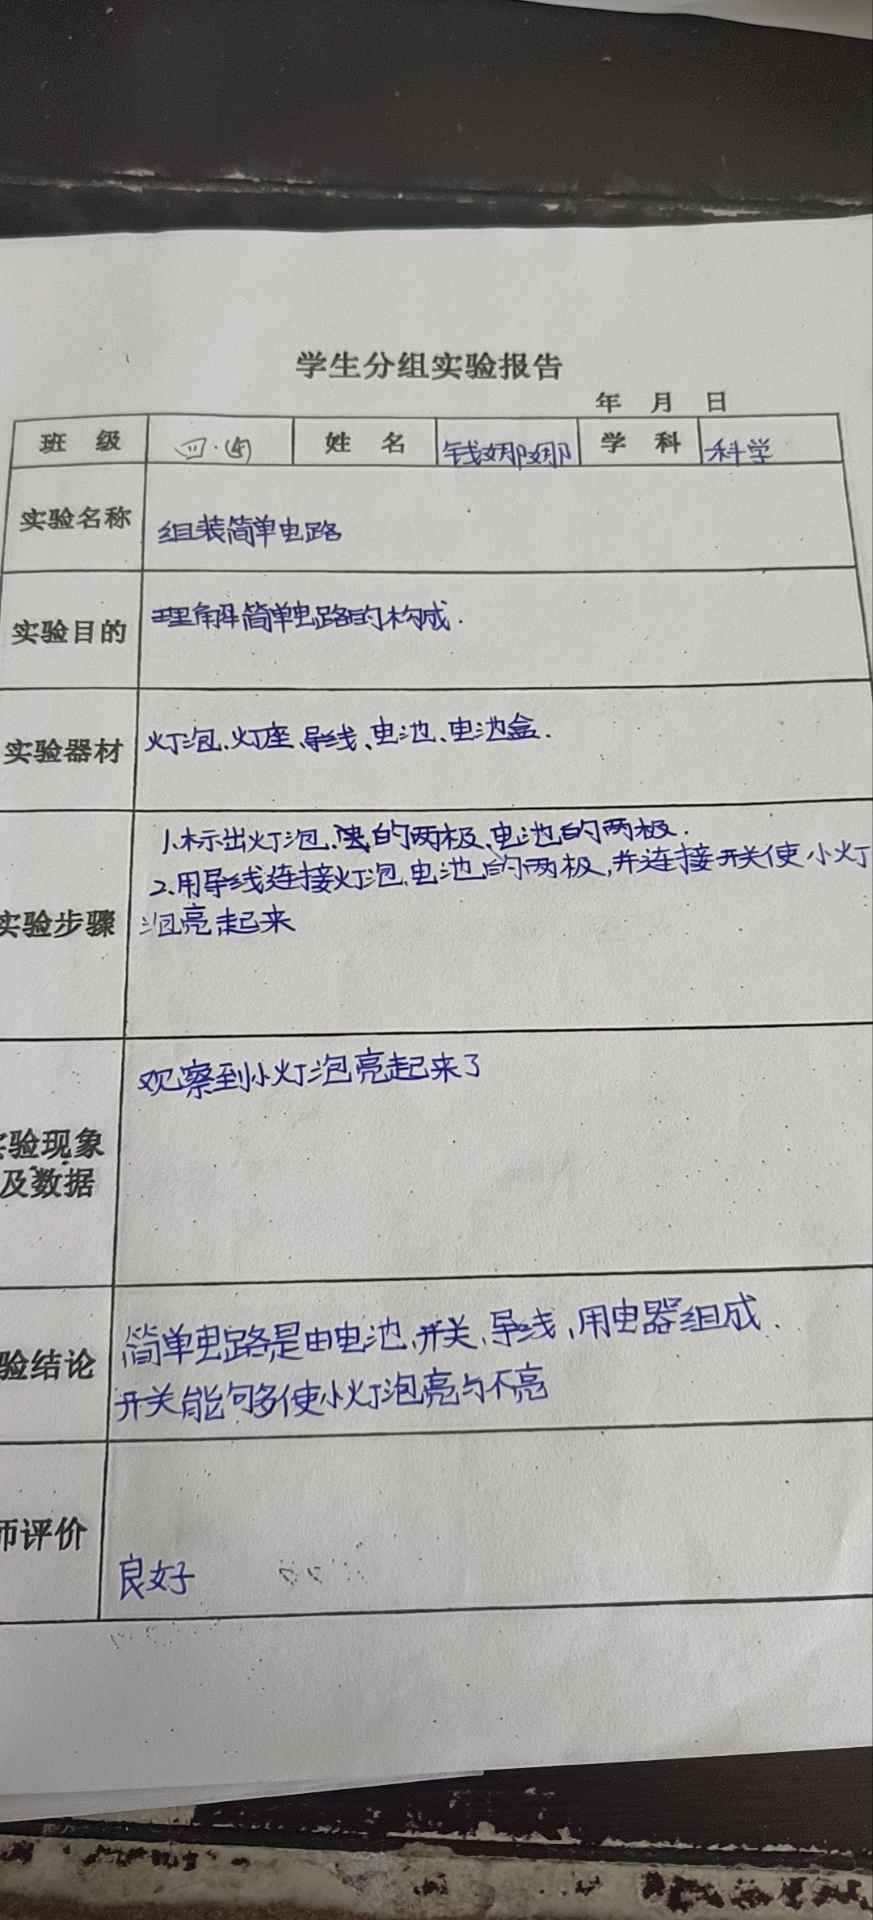 学生分组实验报告
年 月 日
班 级 四·(5) 姓 名 钱娜娜 学 科 科学
实验名称 组装简单电路
实验目的 理解简单电路的构成.
实验器材 灯泡、灯座、导线、电池、电池盒.
1.标出灯泡、的两极、电池的两极.
2.用导线连接灯泡、电池的两极,并连接开关使小灯
实验步骤 泡亮起来
观察到小灯泡亮起来了
实验现象
及数据
简单电路是由电池、开关、导线、用电器组成.
验结论
开关能够使小灯泡亮与不亮
师评价
良好